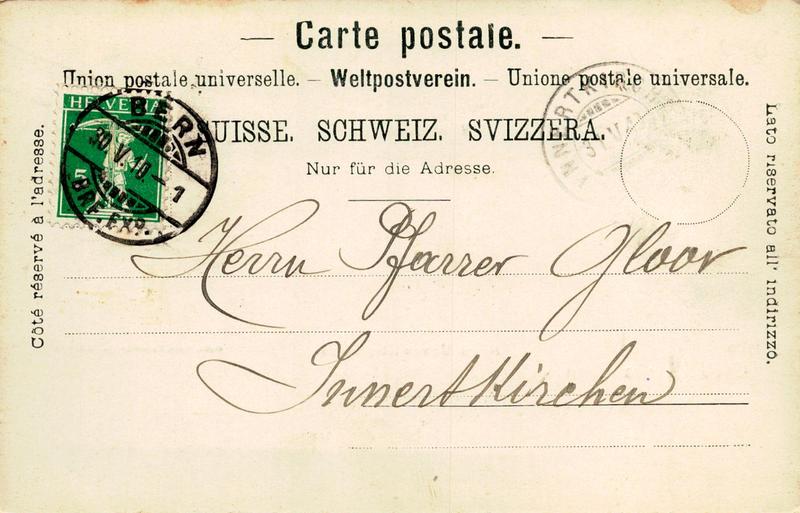 — Carte postale. —
Union postale universelle. – Weltpostverein. – Unione postale universale.
SUISSE. SCHWEIZ. SVIZZERA.
Nur für die Adresse.
Côté réservé à l'adresse.
Lato riservato all' indirizzo.
HELVETIA
5
BERN
30.V.10.–1
BRF. EXP.
Herrn Pfarrer Gloor
Innertkirchen